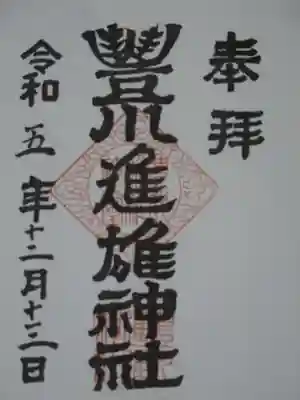 奉拝
豐川進雄神社
令和五年十二月十三日